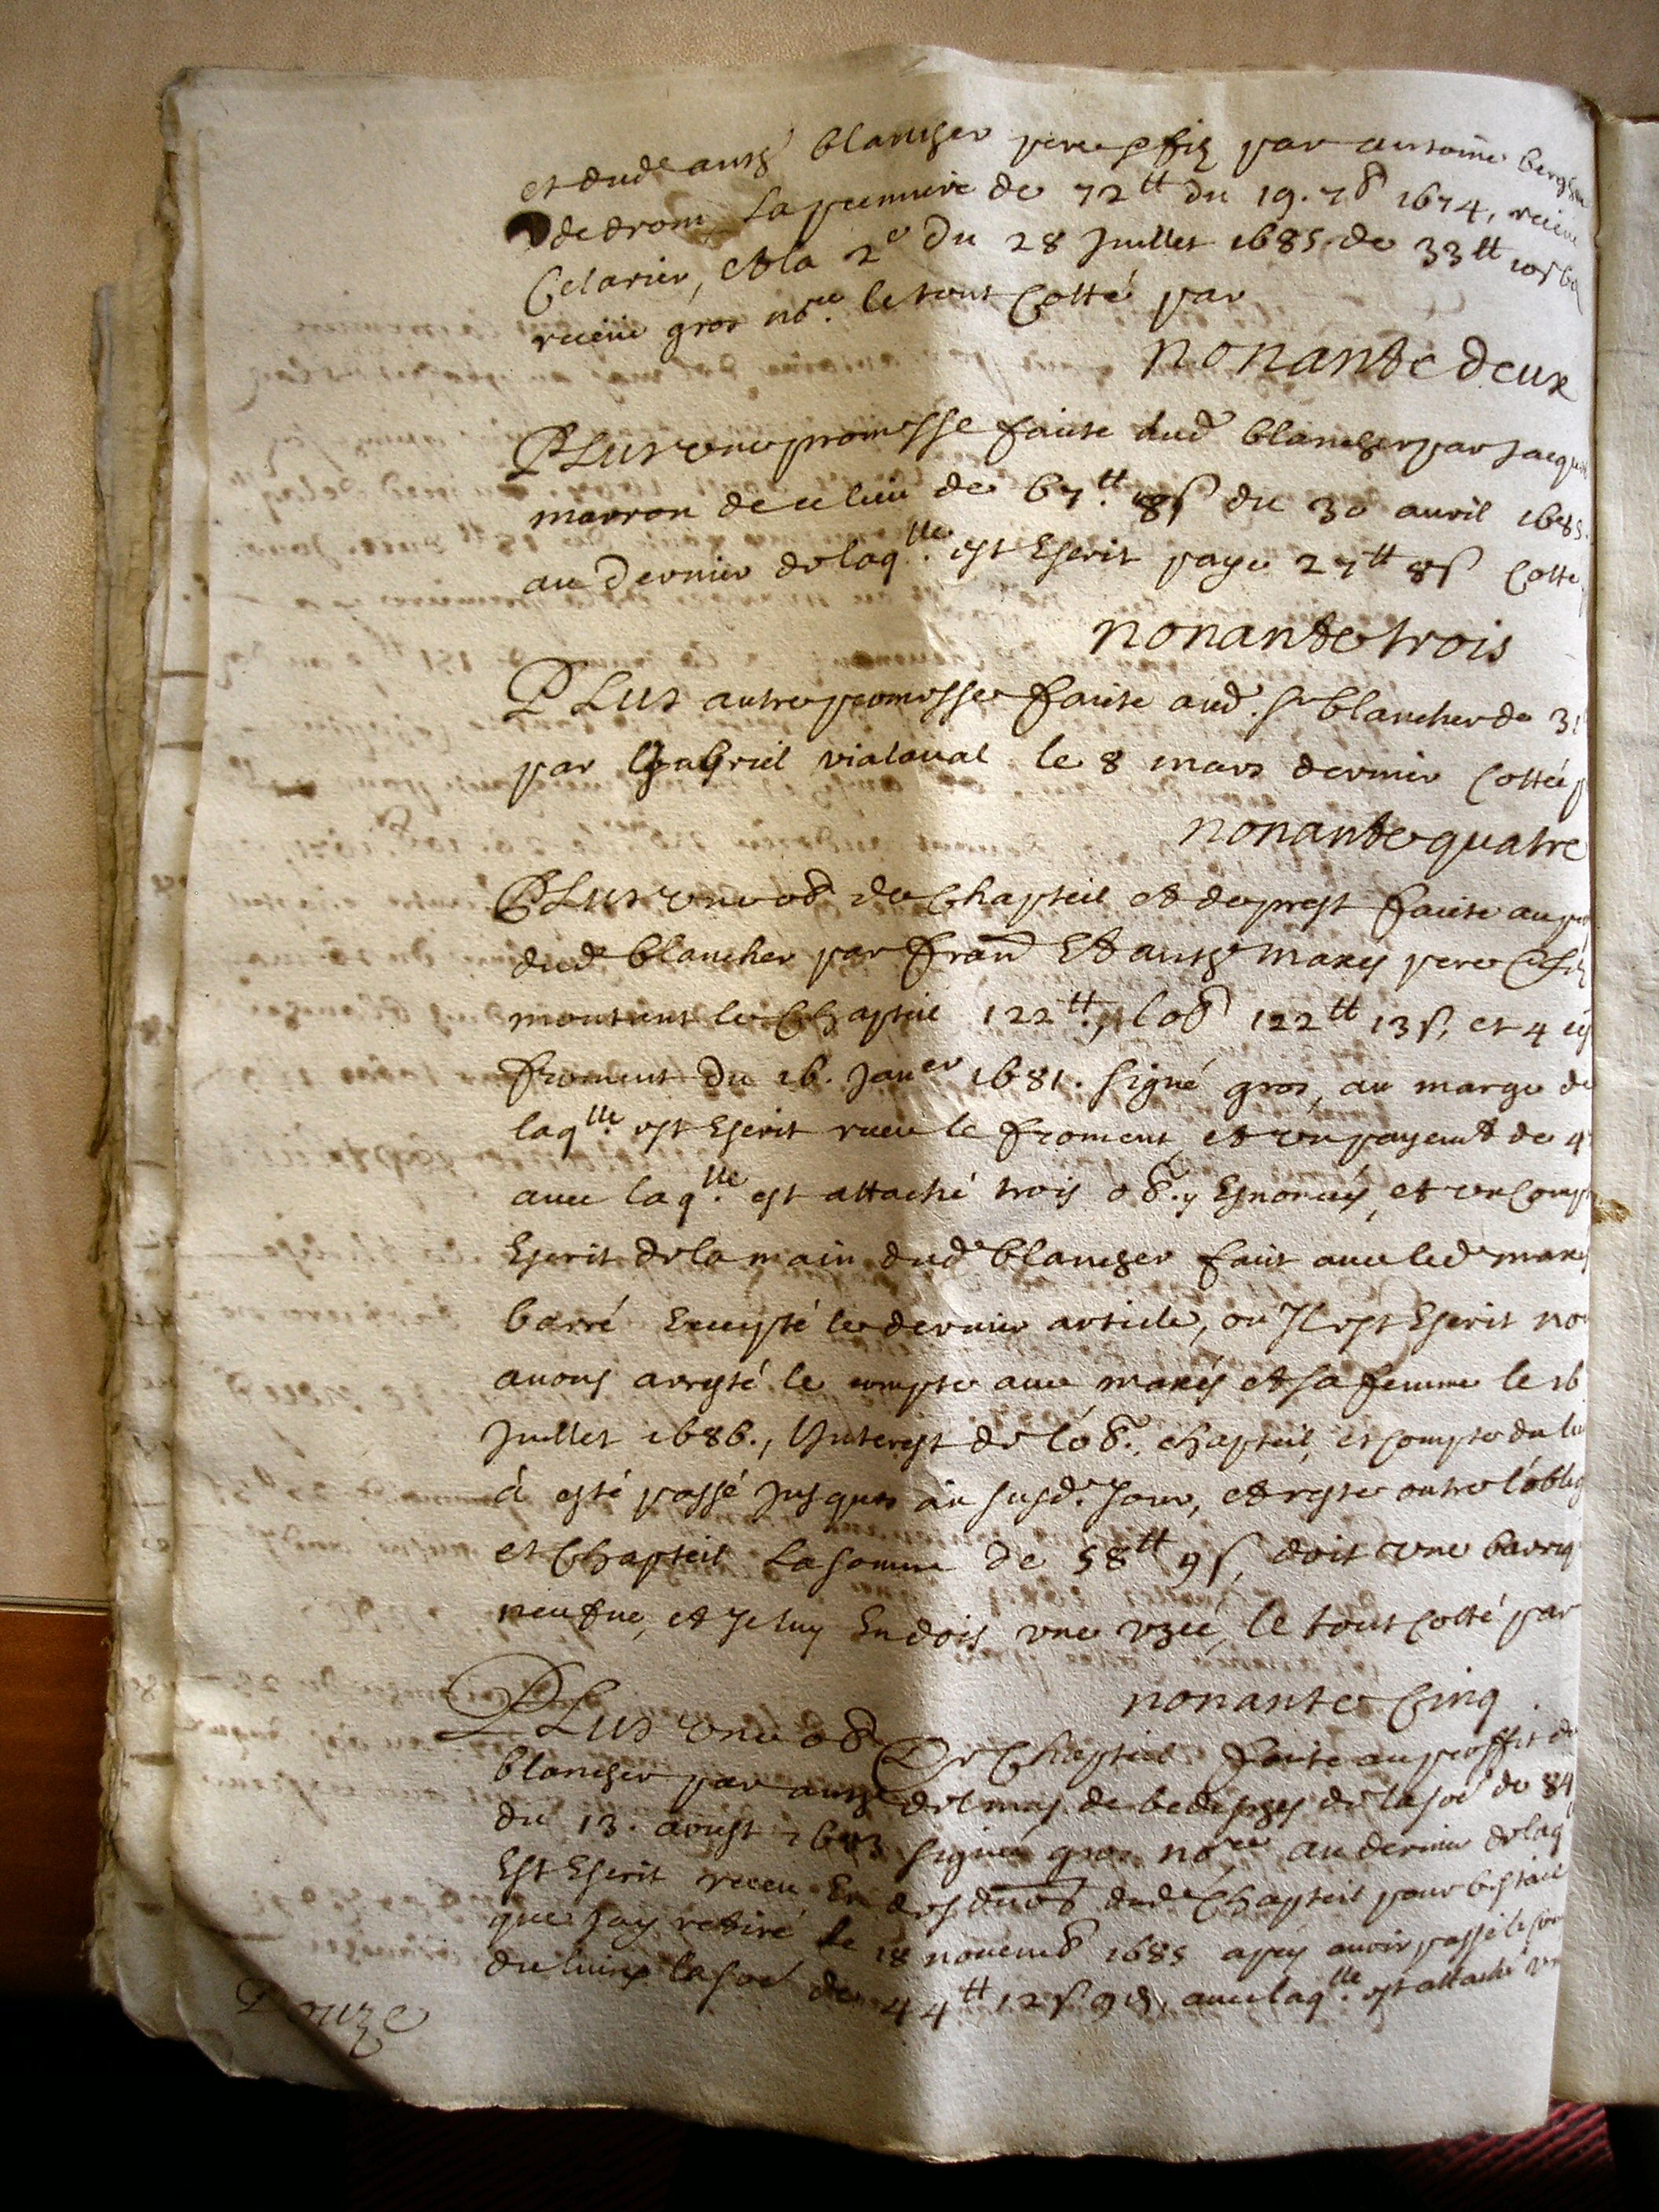 et dud anth blancher pere et filz par antoine
de drom, La premiere de 72tt du 19. 7b 1674, receue
Celarier, et la 2e du 28 Juillet 1685 de 33tt
receue gros nore. le tout Cotté par
nonante deux
PLus une promesse faite aud blancher par Jacques
marron de ce lieu de 67tt. 8s du 30 auril 1685.
au dernier de laqlle. est Escrit paye 27tt 8s Cotté
nonante trois
PLus autre promesse faite aud. sr blancher de
par Gabriel vialaual le 8 mars dernier Cottée
nonante quatre
PLus une ob de Chapteil et de prest faite au
dud blancher par fran Et anth maxes pere et filz
montent le Chapteil 122tt, lob 122tt 13s, et 4
froment du 16. Janer 1681. signé gros, au marge de
laqlle. est Escrit receu le froment, et un payemt de
auec laqlle. est attaché trois ob. et un
Escrit de la main dud blancher fait auec led
barré Excepté le dernier article, ou Jl est Escrit
auons arresté le compte auec maxes et sa femme le 16
Juillet 1686., l'Jnterest de l'ob. chapteil, et compte du
à esté passé Jusques au susd. Jour, et reste outre l'oblig
et Chapteil La somme de 58tt 9s, doit une
neufue, et Je luy En dois une vzée, le tout Cotté par
nonante Cinq
PLus une ob De Chapteil faite au proffit de
blancher par anth delmas de de la soe de 84
du 13. aoust 1683 signée gros nore au dernier de laq
Est Escrit receu En dud Chapteil pour bestail
que jay retiré le 18 nouemb 1685 apres auoir passé le
du liure la soe de 44tt 12s 9d, auec laqlle. est attaché
Douze